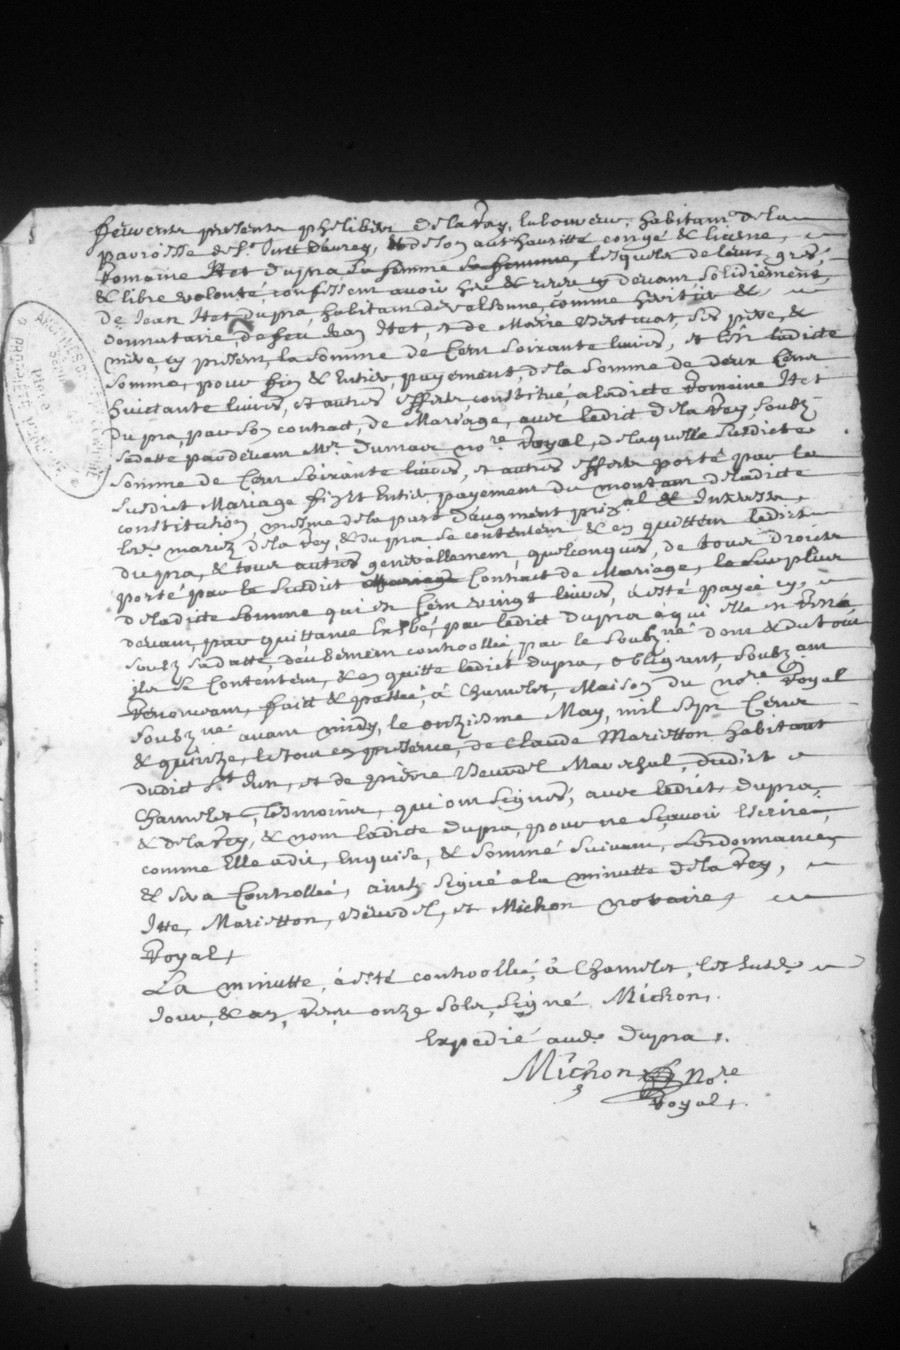 furent present phelibert delarey, laboureur, habitant de la
parroisse de St Just d'avrey, & de son authauritté congé & licene,
Romaine Itet dupra sa femme, lesquels de leurs grés,
& libre volonté, confessent avoir heu & receu cy devant solidierement,
de Jean Itet dupra, habitant de valsonne, comme heritier &
donnataire, de feu Jean Itet, et de Marie Berthat, ses pere, &
mere, cy present, la somme de Cent soixante livres, et c'est ladicte
somme, pour fin & Entier payement, de la somme de deux Cent
huictante livres, et autres effets, constitué, a ladicte Romaine Itet
dupra, par son contract, de Mariage, avec ledict delarey, soubz
sadatte pardevant Mr. Dumas nore. Royal, de laquelle susdicte
somme de Cent soixante livres, et autres effets porté par le
susdict Mariage fin et Entier payement du montant de ladicte
constitution, mesme de la part d'augment &
les mariez delarey, & dupra se contentent & en quittent ledict
dupra, & tous autres generallement, quelconques, de tous droits
porté par le susdict Contract de Mariage, le surplus
de ladicte somme qui est Cent vingt livres, a esté payée cy
devant, par quittance par ledict dupra a qui elle
soubz sadatte, deubement controollée, par le soubz né dont & du tout
ils se Contentent, & en quitte ledict dupra, obligeant, soubz
Renonceant, faict & passée, a Chamelet, Maison du nore. Royal
soubz né avant midy, le onziesme May, mil sept Cents
& quinze, le tout en presence, de Claude Marietton habitant
dudict St. Jun, et de pierre Mareschal, dudict
Chamelet, tesmoins, qui ont signés, avec ledict dupra,
& delarey, & non ladicte dupra, pour ne sçavoir Escrire,
comme Elle a dit, Enquise, & sommé suivant, L'ordonnance,
& sera Controllée, ainsy signé a la minutte delarey,
Itte, Marietton, et Michon notaire
Royal,
La minutte, a esté controollée, a Chamelet, lesusd.
jour, & an, receu onze sols, signé Michon,
Expedié aud. dupra,.
Michon Nore
Royal,
ARCHIVES